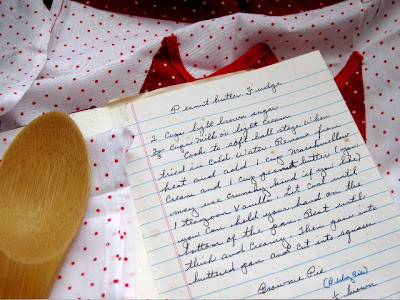 Peanut butter Fudge
2 Cups light brown sugar
3/4 Cups milk or light Cream
Cook to soft ball stage when
tried in Cold Water. Remove from
heat and add 1 Cup Marshmallow
Cream and 1 Cup peanut butter (you
may use Crunchy kind if you like)
1 teaspoon Vanilla. Let Cool until
you Can hold your hand on the
bottom of the pan. Beat until
thick and Creamy. Then pour into
buttered pan and Cut into squares
Brownie Pie
brown